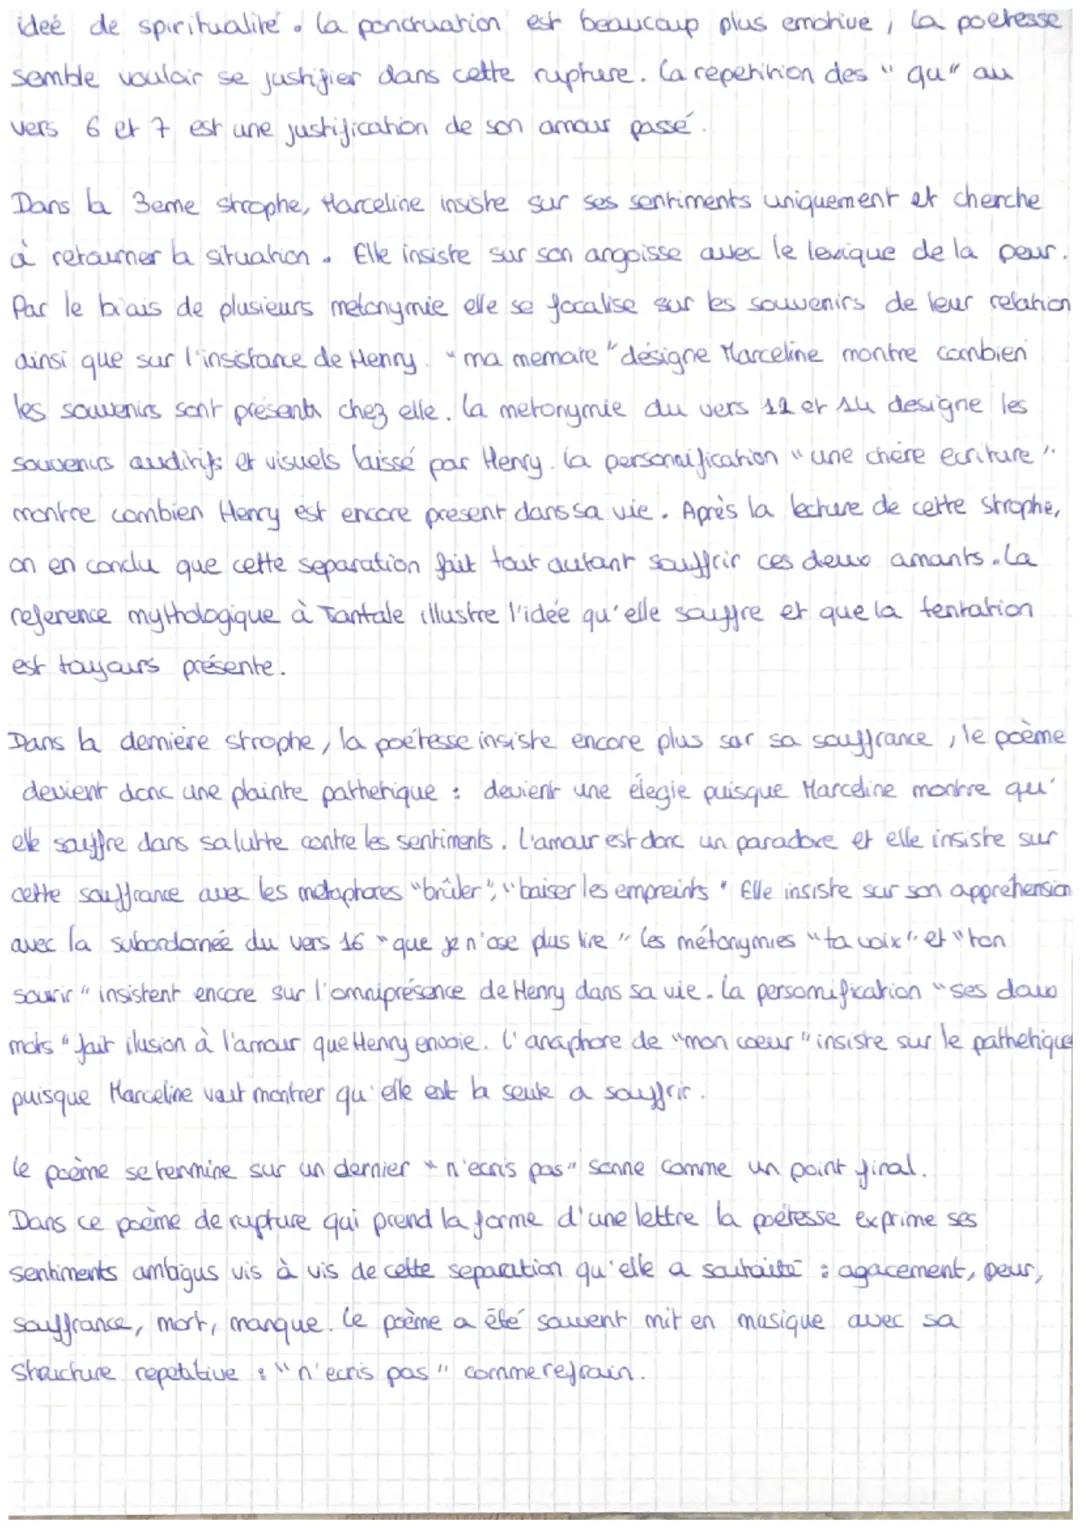 ideé de spiritualité. La ponctuation est beaucoup plus emotive, la poetesse
semble vouloir se justifier dans cette rupture. La repetition des "qu" au
vers 6 et 7 est une justification de son amour passé.
Dans la 3eme strophe, Marceline insiste sur ses sentiments uniquement et cherche
à retourner la situation. Elle insiste sur son angoisse avec le lexique de la peur.
Par le biais de plusieurs metonymie elle se focalise sur les souvenirs de leur relation
ainsi que sur l'insistance de Henry. "ma memoire" désigne Marceline montre combien
les souvenirs sont présents chez elle. La metonymie du vers 12 et 14 designe les
souvenirs auditifs et visuels laissé par Henry. La personnification "une chère ecriture".
montre combien Henry est encore present dans sa vie. Après la lecture de cette strophe,
on en conclu que cette separation fait tout autant souffrir ces deux amants. La
reference mythologique à Tantale illustre l'idée qu'elle souffre et que la tentation
est toujours présente.
Dans la dernière strophe, la poétesse insiste encore plus sur sa souffrance, le poème
devient donc une plainte pathetique : devient une élegie puisque Marceline montre qu'
elle souffre dans sa lutte contre les sentiments. L'amour est donc un paradoxe et elle insiste sur
cette souffrance avec les metaphores "brûler", "baiser les empreints" Elle insiste sur son apprehension
avec la subordonneé du vers 16 "que je n'ose plus lire" Les métonymies "ta voix" et "ton
sourir" insistent encore sur l'omniprésence de Henry dans sa vie. La personnification "ses doux
mots" fait ilusion à l'amour que Henry envoie. L'anaphore de "mon coeur" insiste sur le pathetique
puisque Marceline veut montrer qu'elle est la seule a souffrir.
Le poème se termine sur un dernier "n'ecris pas" sonne comme un point final.
Dans ce poème de rupture qui prend la forme d'une lettre la poétesse exprime ses
sentiments ambigus vis à vis de cette separation qu'elle a souhaité : agacement, peur,
souffrance, mort, manque. Le poème a été souvent mit en musique avec sa
structure repetitive : "n'ecris pas" comme refrain.